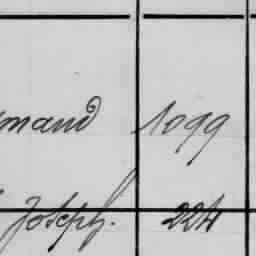 mand 1099
Joseph. 224